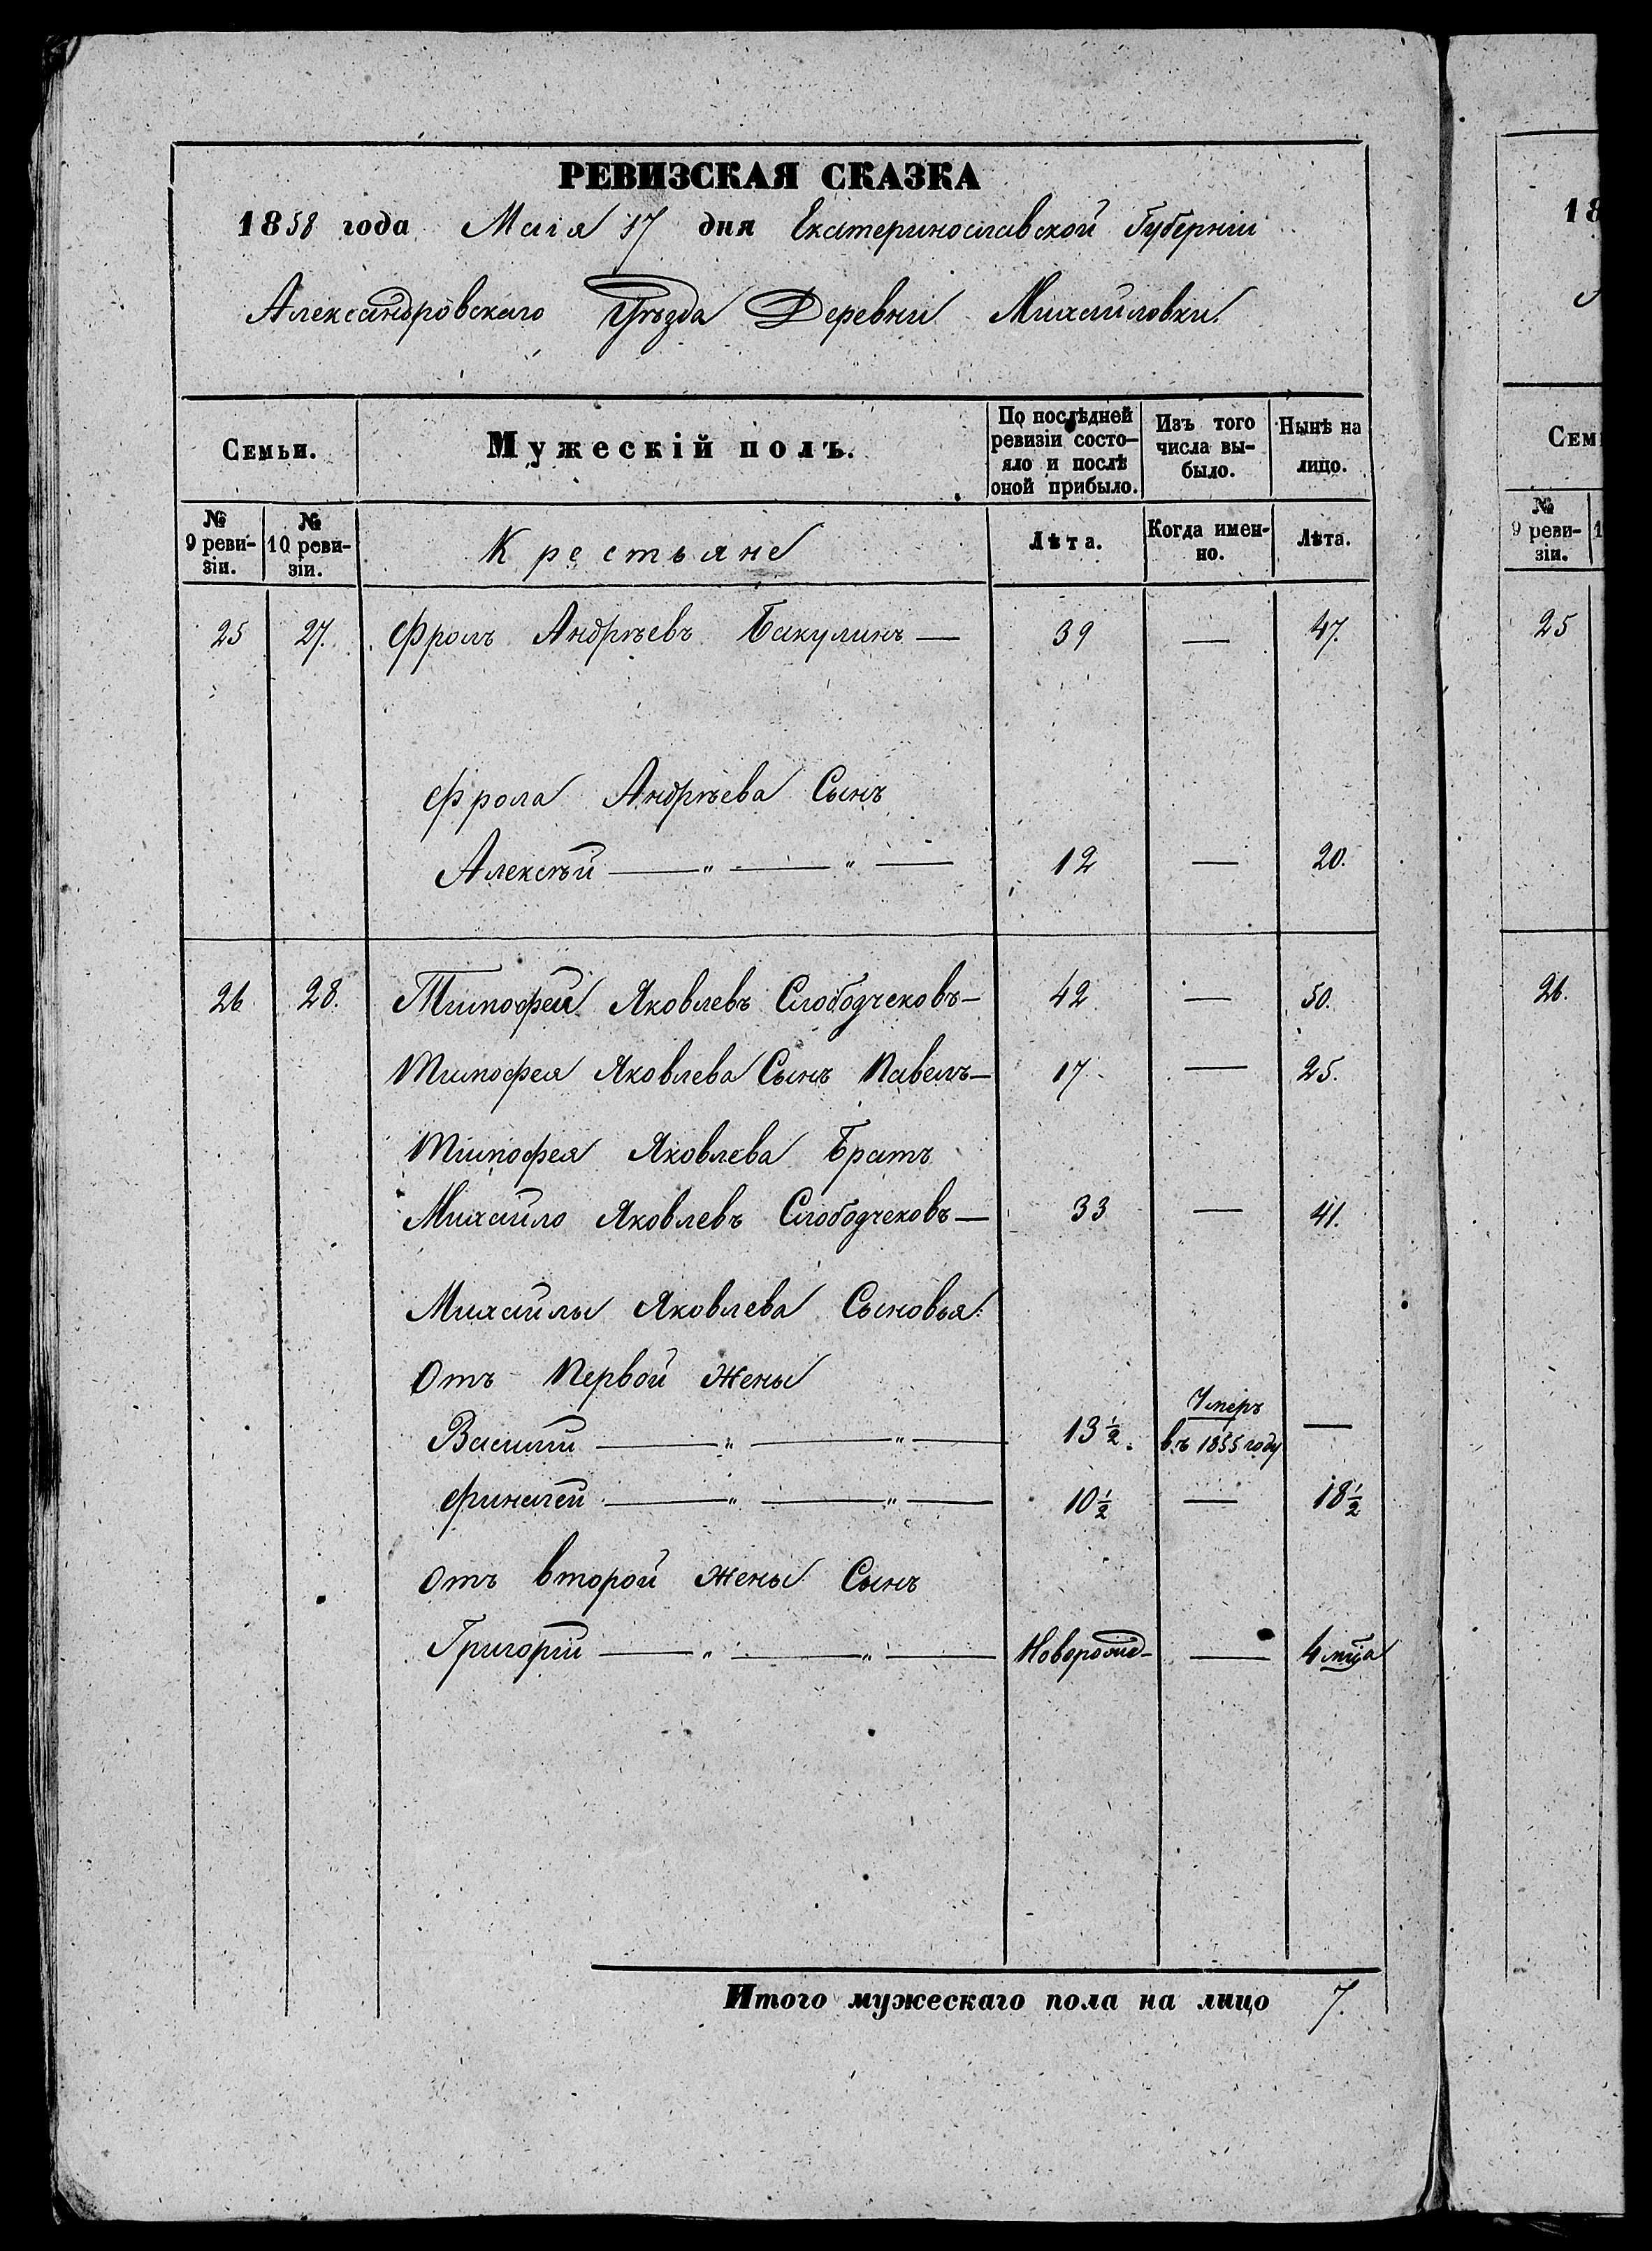 РЕВИЗСКАЯ СКАЗКА
1858 года Маія 17 дня Екатеринославской Губерніи
Александровскаго Уѣзда Деревни Михайловки
Семьи. Мужескій полъ. По послѣдней ревизіи состояло и послѣ оной прибыло. Изъ того числа выбыло. Нынѣ на лицо.
№ 9 ревизіи. № 10 ревизіи. Крестьяне Лѣта. Когда именно. Лѣта.
25 27. Фролъ Андрѣевъ Бакулинъ — 39 — 47.
Фрола Андрѣева Сынъ
Алексѣй — " — " — 12 — 20.
26. 28. Тимофей Яковлевъ Слободчековъ — 42 — 50.
Тимофея Яковлева Сынъ Павелъ — 17 — 25.
Тимофея Яковлева Братъ
Михайло Яковлевъ Слободчековъ — 33 — 41.
Михайлы Яковлева Сыновья:
Отъ Первой Жены
Василій — " — " — 13½. Умеръ въ 1855 году —
Финаген — " — " — 10½ — 18½
Отъ Второй Жены Сынъ
Григорій — " — " — Новорожд— — 4 мц̃а
Итого мужескаго пола на лицо 7.
18
Сем
№ 9 ревизіи. 1
25
26.